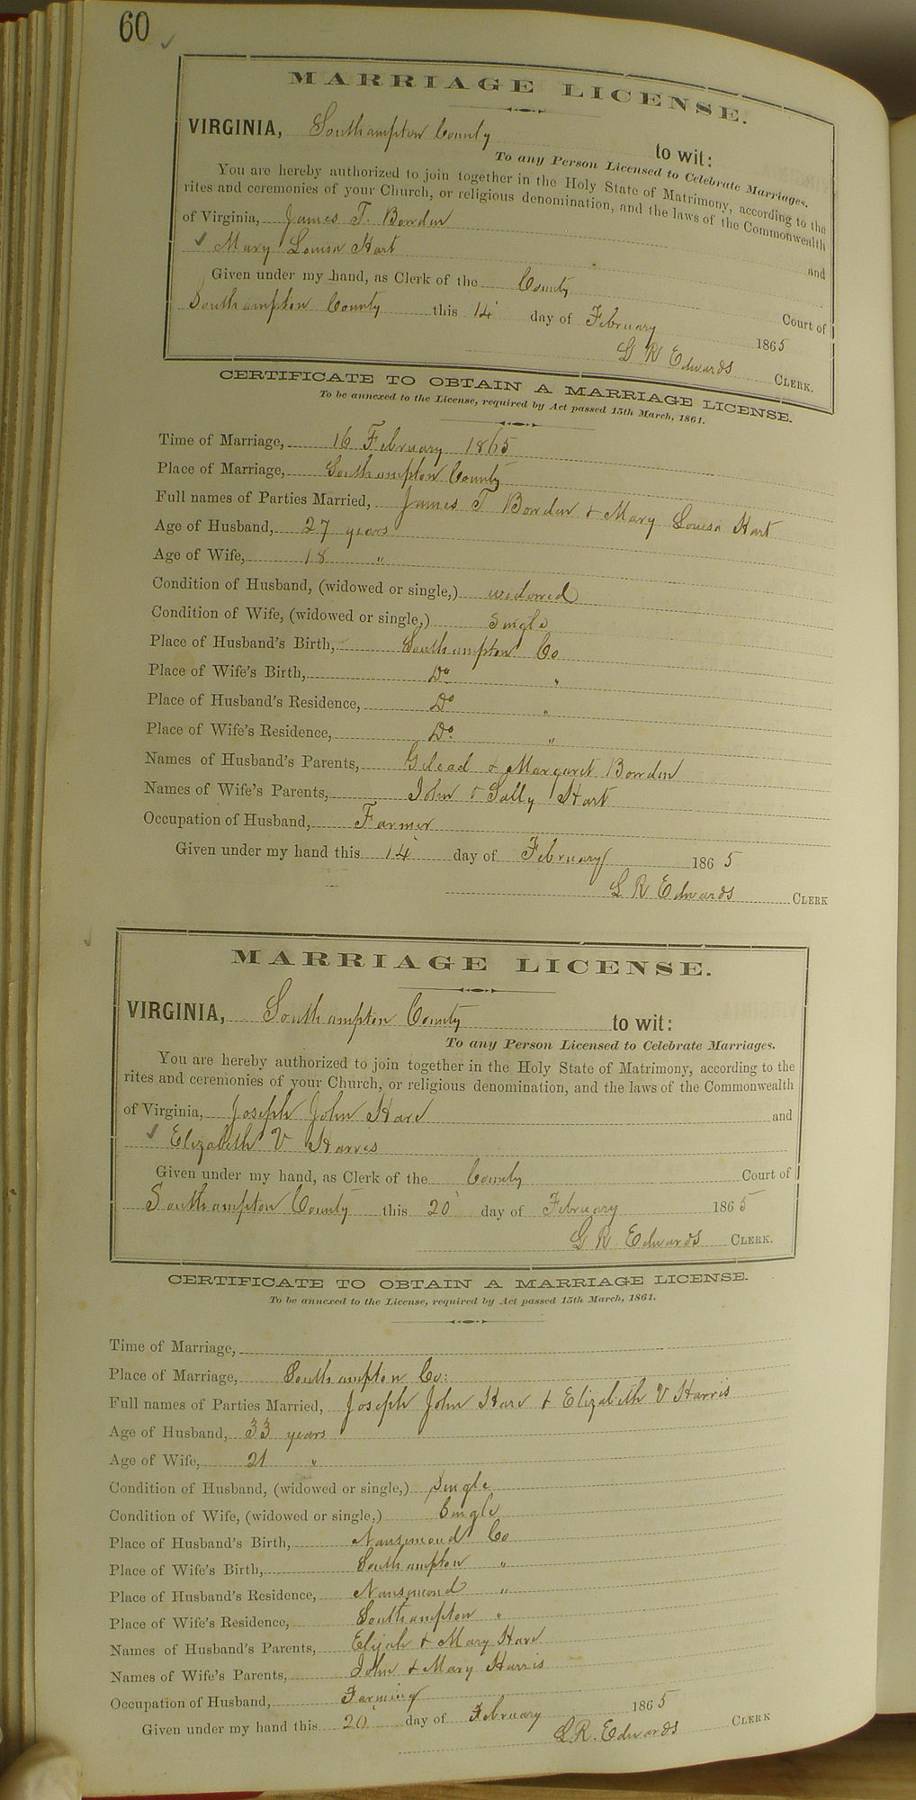 60
MARRIAGE LICENSE.
VIRGINIA, Southampton County to wit:
To any Person Licensed to Celebrate Marriages.
You are hereby authorized to join together in the Holy State of Matrimony, according to the
rites and ceremonies of your Church, or religious denomination, and the laws of the Commonwealth
of Virginia, James T. Bowden and
Mary Louisa Hart
Given under my hand, as Clerk of the County Court of
Southampton County this 14 day of February 1865
L R Edwards CLERK.
CERTIFICATE TO OBTAIN A MARRIAGE LICENSE.
To be annexed to the License, required by Act passed 15th March, 1861.
Time of Marriage, 16 February 1865
Place of Marriage, Southampton County
Full names of Parties Married, James T Bowden & Mary Louisa Hart
Age of Husband, 27 years
Age of Wife, 18 "
Condition of Husband, (widowed or single,) widowed
Condition of Wife, (widowed or single,) Single
Place of Husband's Birth, Southampton Co
Place of Wife's Birth, Do "
Place of Husband's Residence, Do "
Place of Wife's Residence, Do. "
Names of Husband's Parents, Gilead & Margaret Bowden
Names of Wife's Parents, John & Sally Hart
Occupation of Husband, Farmer
Given under my hand this 14 day of February 1865
L R Edwards CLERK
MARRIAGE LICENSE.
VIRGINIA, Southampton County to wit:
To any Person Licensed to Celebrate Marriages.
You are hereby authorized to join together in the Holy State of Matrimony, according to the
rites and ceremonies of your Church, or religious denomination, and the laws of the Commonwealth
of Virginia, Joseph John Hare and
Elizabeth V Harris
Given under my hand, as Clerk of the County Court of
Southampton County this 20 day of February 1865
L R Edwards CLERK.
CERTIFICATE TO OBTAIN A MARRIAGE LICENSE.
To be annexed to the License, required by Act passed 15th March, 1861.
Time of Marriage,
Place of Marriage, Southampton Co:
Full names of Parties Married, Joseph John Hare & Elizabeth V Harris
Age of Husband, 33 years
Age of Wife, 21 "
Condition of Husband, (widowed or single,) Single
Condition of Wife, (widowed or single,) Single
Place of Husband's Birth, Nansemond Co
Place of Wife's Birth, Southampton "
Place of Husband's Residence, Nansemond "
Place of Wife's Residence, Southampton "
Names of Husband's Parents, Elijah & Mary Hare
Names of Wife's Parents, John & Mary Harris
Occupation of Husband, Farming
Given under my hand this 20 day of February 1865
L R. Edwards CLERK